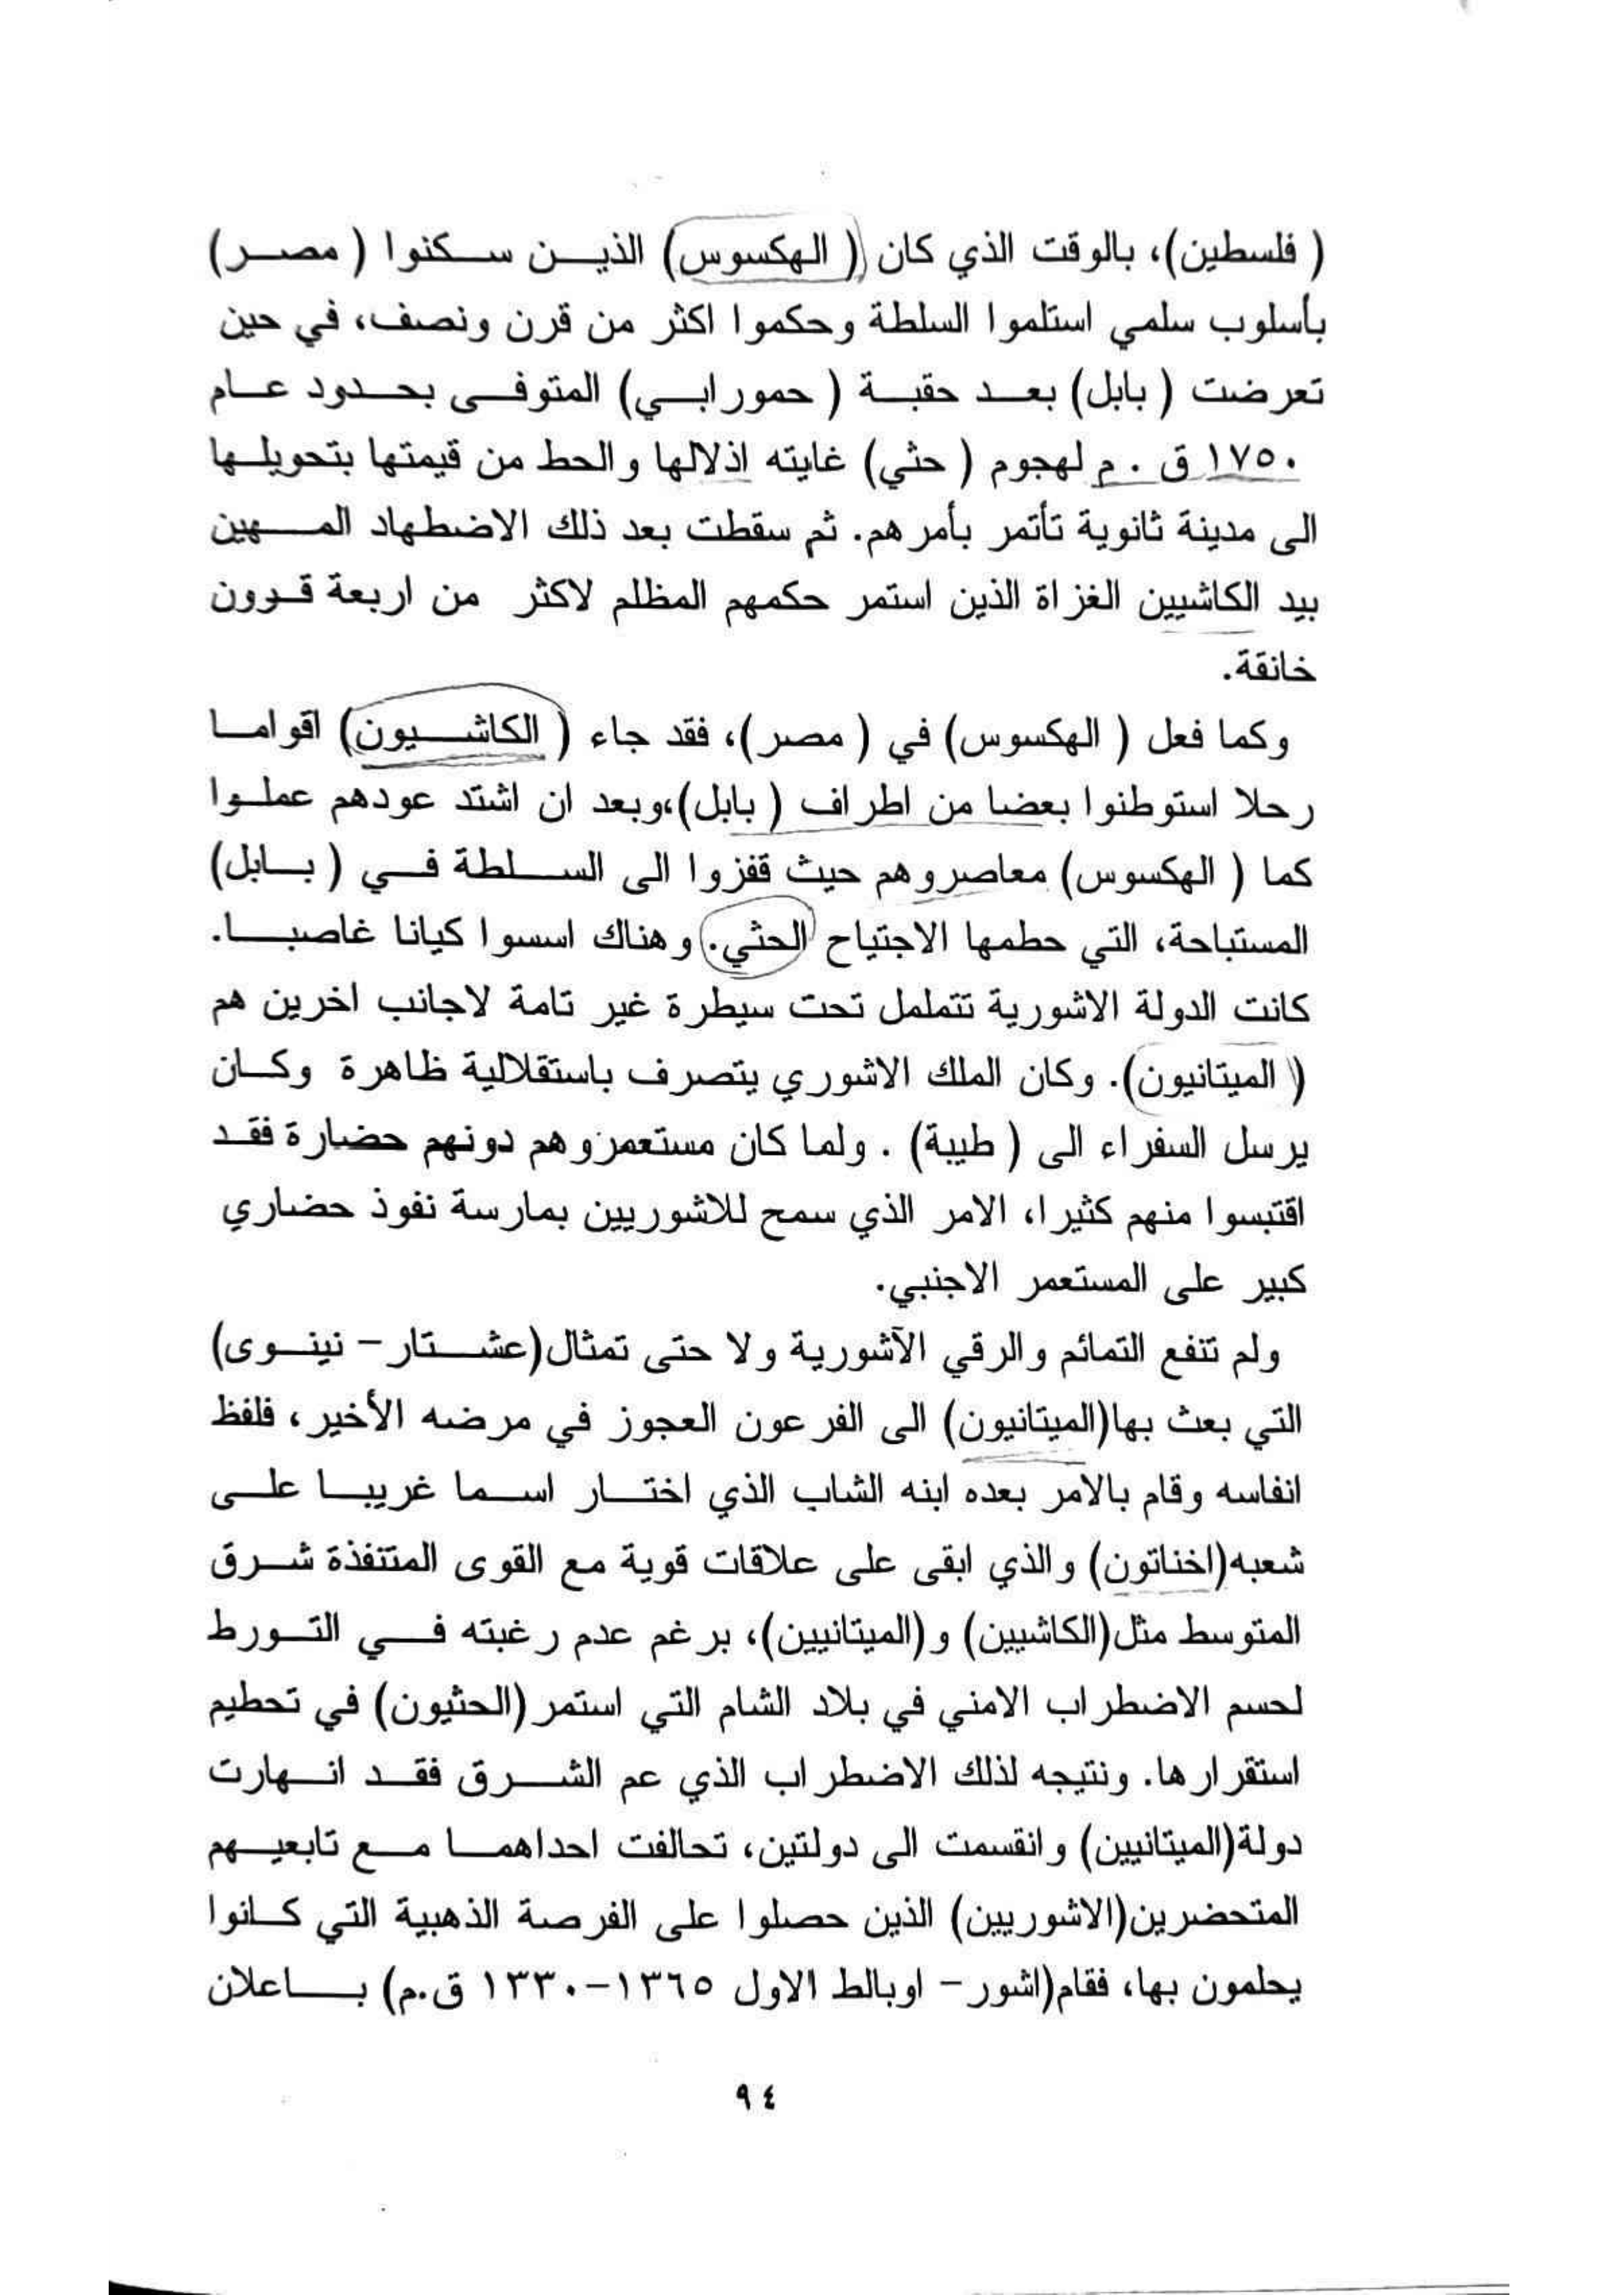 ( فلسطين)، بالوقت الذي كان ( الهكسوس) الذين سكنوا ( مصر)
بأسلوب سلمي استلموا السلطة وحكموا اكثر من قرن ونصف، في حين
تعرضت ( بابل) بعد حقبة ( حمورابي) المتوفى بحدود عام
١٧٥٠ ق . م لهجوم ( حثي) غايته اذلالها والحط من قيمتها بتحويلها
الى مدينة ثانوية تأتمر بأمرهم. ثم سقطت بعد ذلك الاضطهاد المهين
بيد الكاشيين الغزاة الذين استمر حكمهم المظلم لاكثر من اربعة قرون
خانقة.
وكما فعل ( الهكسوس) في ( مصر)، فقد جاء ( الكاشيون) اقواما
رحلا استوطنوا بعضا من اطراف ( بابل)،وبعد ان اشتد عودهم عملوا
كما ( الهكسوس) معاصروهم حيث قفزوا الى السلطة في ( بابل)
المستباحة، التي حطمها الاجتياح الحثي. وهناك اسسوا كيانا غاصبا.
كانت الدولة الاشورية تتململ تحت سيطرة غير تامة لاجانب اخرين هم
( الميتانيون). وكان الملك الاشوري يتصرف باستقلالية ظاهرة وكان
يرسل السفراء الى ( طيبة) . ولما كان مستعمروهم دونهم حضارة فقد
اقتبسوا منهم كثيرا، الامر الذي سمح للاشوريين بمارسة نفوذ حضاري
كبير على المستعمر الاجنبي.
ولم تنفع التمائم والرقي الآشورية ولا حتى تمثال(عشتار- نينوى)
التي بعث بها(الميتانيون) الى الفرعون العجوز في مرضه الأخير، فلفظ
انفاسه وقام بالامر بعده ابنه الشاب الذي اختار اسما غريبا على
شعبه(اخناتون) والذي ابقى على علاقات قوية مع القوى المتنفذة شرق
المتوسط مثل(الكاشيين) و(الميتانيين)، برغم عدم رغبته في التورط
لحسم الاضطراب الامني في بلاد الشام التي استمر(الحثيون) في تحطيم
استقرارها. ونتيجه لذلك الاضطراب الذي عم الشرق فقد انهارت
دولة(الميتانيين) وانقسمت الى دولتين، تحالفت احداهما مع تابعيهم
المتحضرين(الاشوريين) الذين حصلوا على الفرصة الذهبية التي كانوا
يحلمون بها، فقام(اشور- اوبالط الاول ١٣٦٥-١٣٣٠ ق.م) باعلان
٩٤